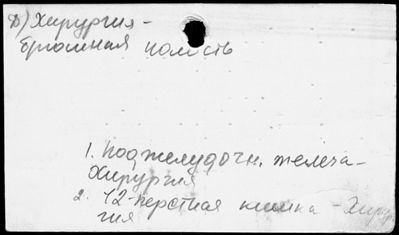 Д) Хирургия -
брюшная полость
1. Поджелудочн. железа -
Хирургия
2. 12-перстная кишка - Хирур
гия